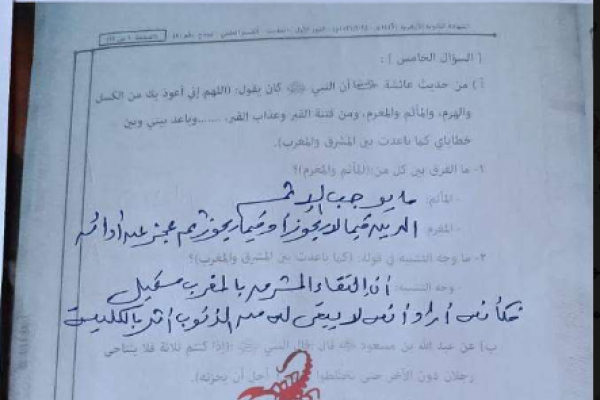 السؤال الخامس :
أ) من حديث عائشة أن النبي ﷺ كان يقول: ((اللهم إني أعوذ بك من الكسل
والهرم، والمأثم والمغرم، ومن فتنة القبر وعذاب القبر، ......وباعد بيني وبين
خطاياي كما باعدت بين المشرق والمغرب).
١- ما الفرق بين كل من: (المأثم والمغرم)؟
- المأثم: ما يوجب الإثم
- المغرم: الدين فيما لا يجوز أو فيما يجوز ثم عجز عن أدائه
٢- ما وجه التشبيه في قوله: (كما باعدت بين المشرق والمغرب)؟
- وجه التشبيه: أن التقاء المشرق بالمغرب مستحيل
فكأنه أراد أنه لا يبقى له من الذنوب أثر بالكلية
ب) عن عبد الله بن مسعود قال: قال النبي ﷺ: ((إذا كنتم ثلاثة فلا يتناجى
رجلان دون الآخر حتى تختلطوا أجل أن يحزنه).